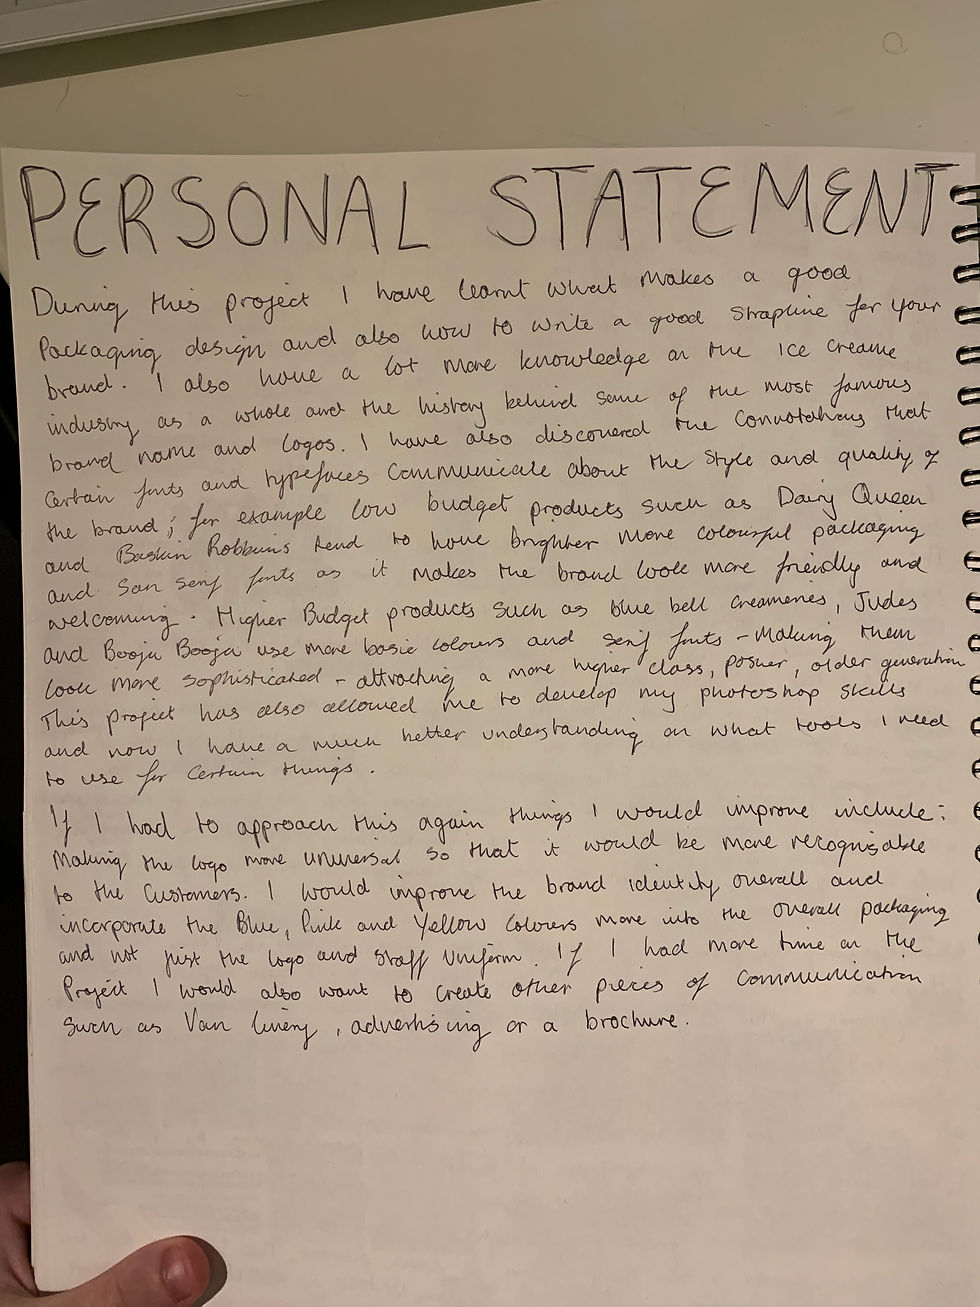 PERSONAL STATEMENT
During this project I have learnt what makes a good
Packaging design and also how to write a good Strapline for your
brand. I also have a lot more knowledge on the Ice creame
industry as a whole and the history behind some of the most famous
brand name and logos. I have also discovered the Connotations that
Certain fonts and typefaces communicate about the style and quality of
the brand; for example low budget products such as Dairy Queen
and Baskin Robbins tend to have brighter more colourful packaging
and San serif fonts as it makes the brand look more friendly and
welcoming. Higher Budget products such as blue bell creameries, Judes
and Booja Booja use more basic colours and serif fonts - Making them
look more sophisticated - attracting a more higher class, posher, older generation
This project has also allowed me to develop my photoshop skills
and now I have a much better understanding on what tools I need
to use for certain things.
If I had to approach this again things I would improve include:
Making the logo more universal so that it would be more recognisable
to the Customers. I would improve the brand identity overall and
incorporate the Blue, Pink and Yellow Colours more into the overall packaging
and not just the logo and Staff Uniform. If I had more time on the
Project I would also want to create other pieces of communication
Such as Van livery, advertising or a brochure.